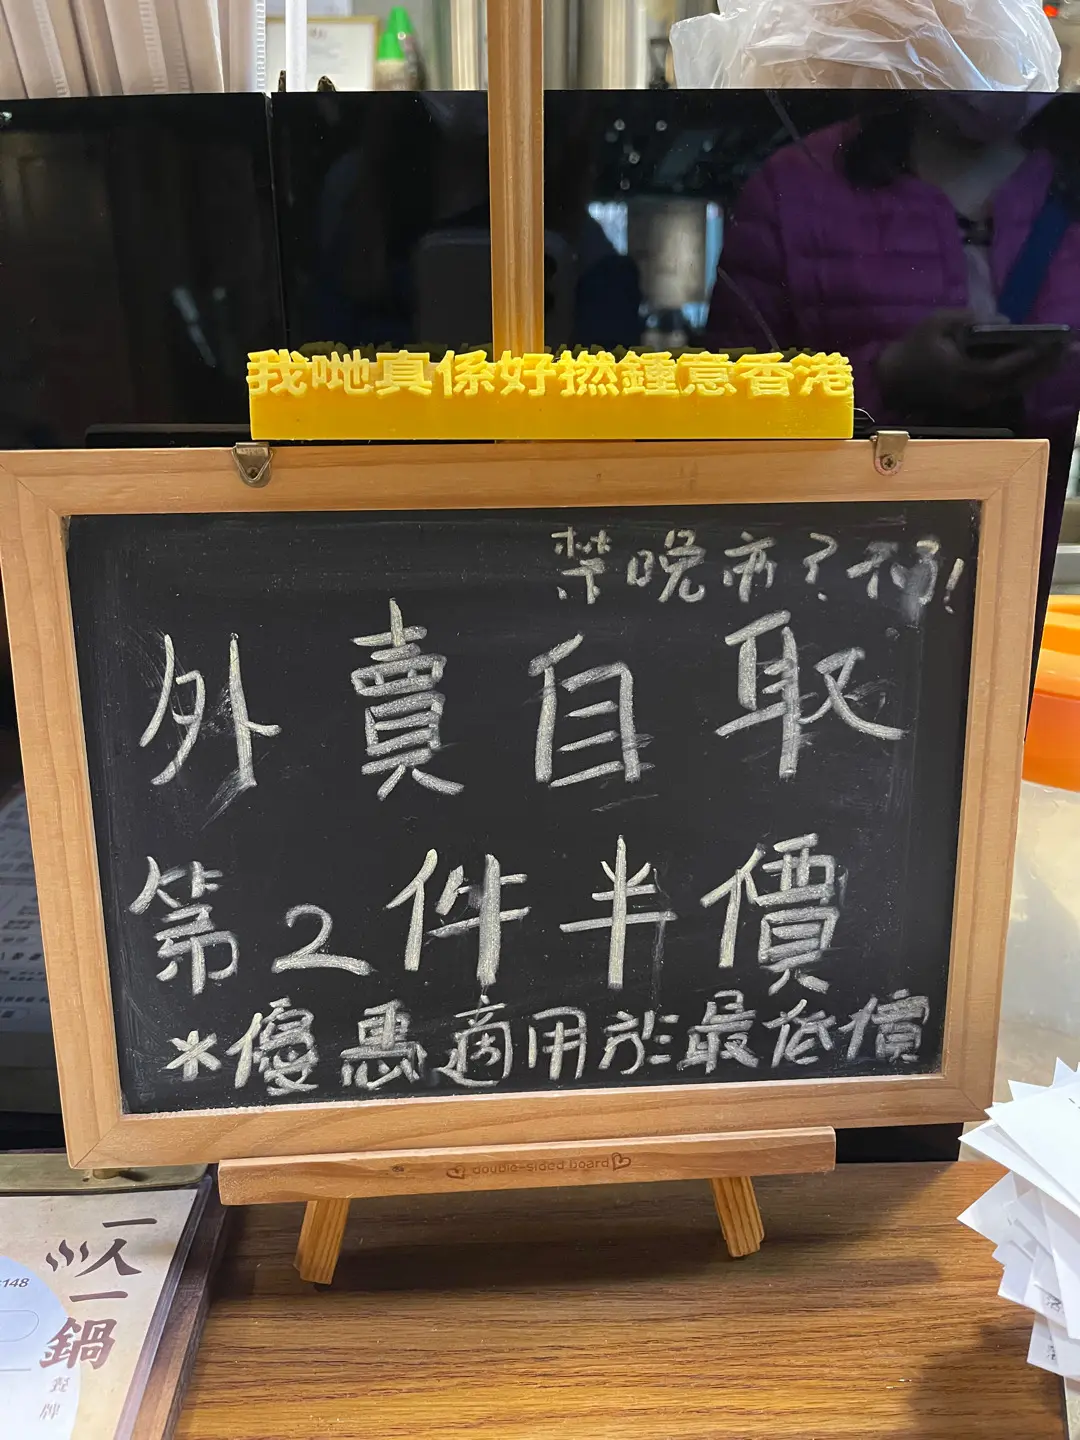 我哋真係好撚鍾意香港
禁晚市?
外賣自取
第2件半價
*優惠適用於最低價
double-sided board
一人一鍋
餐牌
148